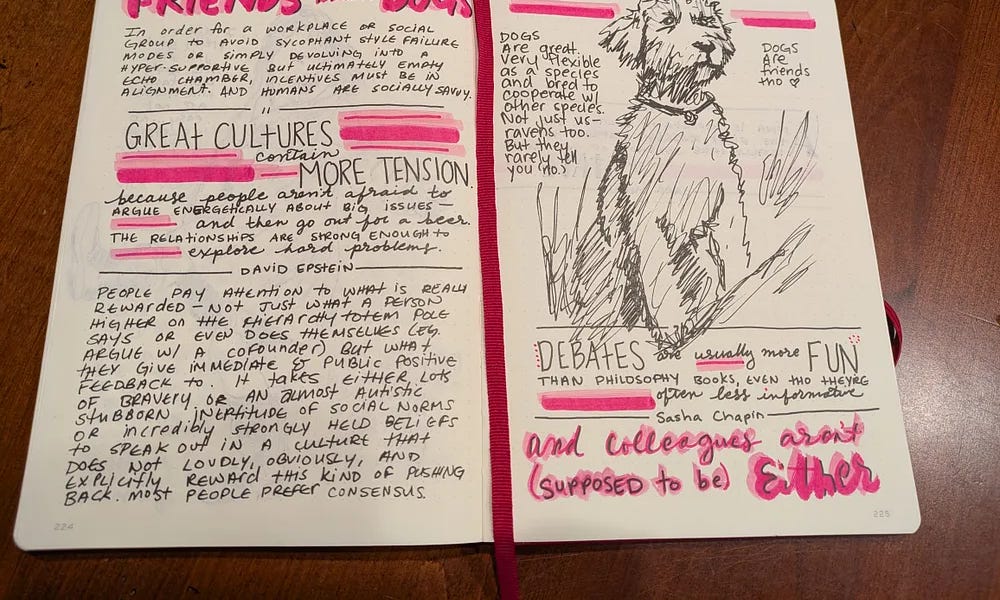 FRIENDS DOGS
In order for a workplace or social
group to avoid sycophant style failure
modes or simply devolving into a
hyper-supportive but ultimately empty
echo chamber, incentives must be in
alignment. And humans are socially savvy.
GREAT CULTURES
contain
MORE TENSION
because people aren't afraid to
ARGUE ENERGETICALLY ABOUT BIG ISSUES—
and then go out for a beer.
THE RELATIONSHIPS ARE STRONG ENOUGH to
explore hard problems.
DAVID EPSTEIN
PEOPLE PAY ATTENTION TO WHAT IS REALLY
REWARDED - NOT JUST WHAT A PERSON
HIGHER ON THE HIERARCHY TOTEM POLE
SAYS OR EVEN DOES THEMSELVES (EG.
ARGUE W/ A COFOUNDER) BUT WHAT
THEY GIVE IMMEDIATE & PUBLIC POSITIVE
FEEDBACK TO. IT TAKES EITHER LOTS
OF BRAVERY OR AN ALMOST AUTISTIC
STUBBORN INEPTITUDE OF SOCIAL NORMS
OR INCREDIBLY STRONGLY HELD BELIEFS
TO SPEAK OUT IN A CULTURE THAT
DOES NOT LOUDLY, OBVIOUSLY, AND
EXPLICITLY REWARD THIS KIND OF PUSHING
BACK. MOST PEOPLE PREFER CONSENSUS.
224
DOGS
Are great.
Very flexible
as a species
and bred to
cooperate w/
other species.
Not just us-
ravens too.
But they
rarely tell
you (no.)
DOGS
Are
friends
tho ♡
DEBATES are usually more FUN
THAN PHILOSOPHY BOOKS, EVEN THO THEYRE
often less informative
Sasha Chapin
and colleagues aren't
(SUPPOSED to be) Either
225